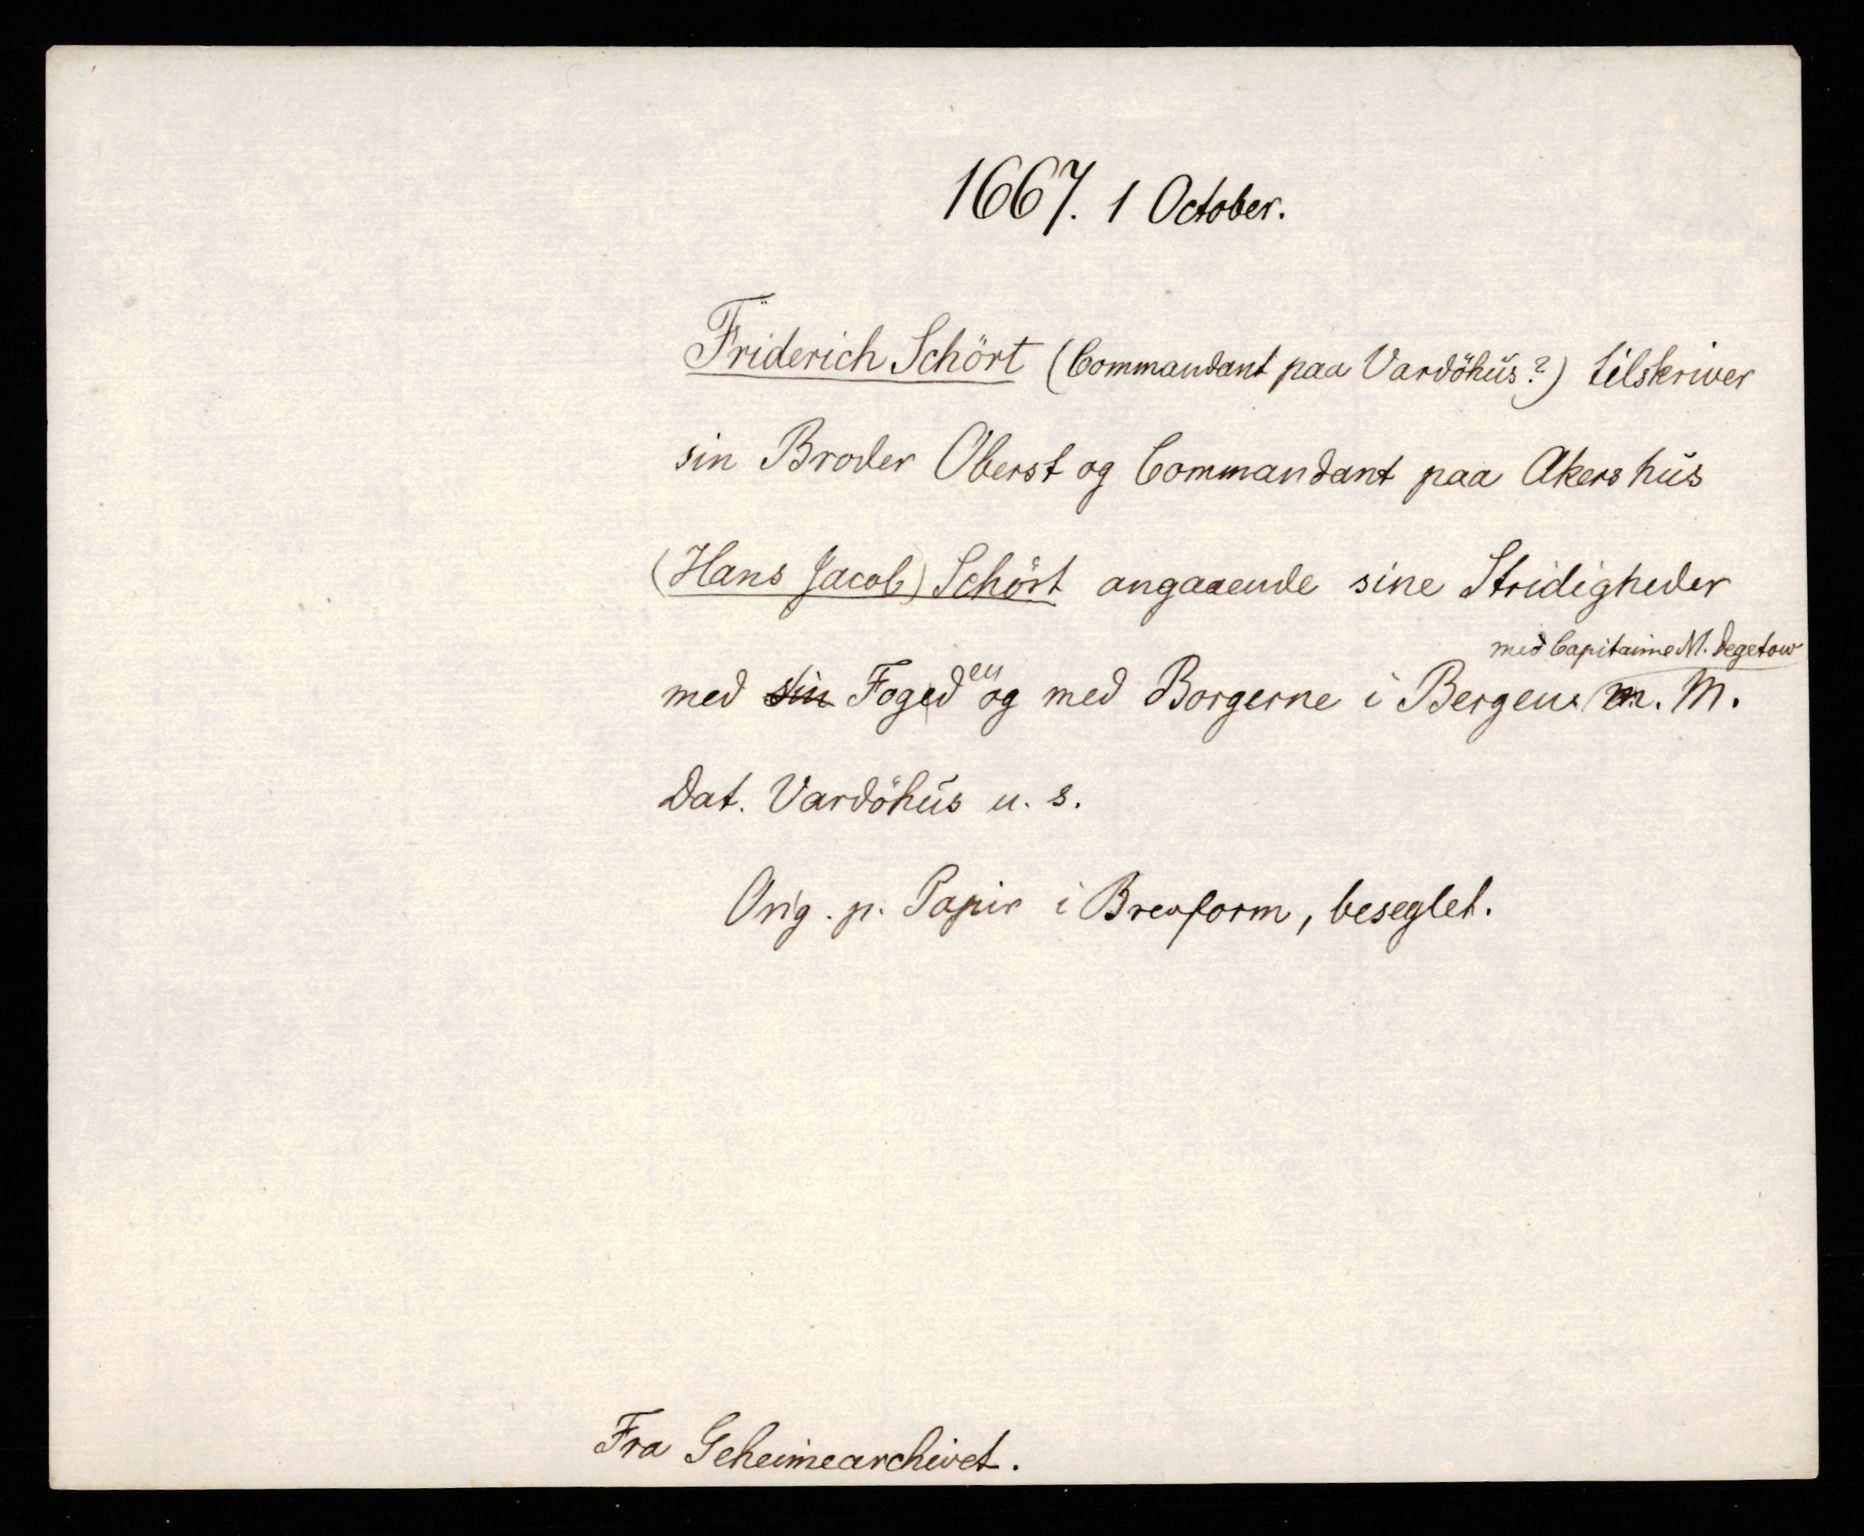 1667. 1 October.
Friderich Schört (Commandant paa Vardöhŭs?) tilskriver
sin Broder Oberst og Commandant paa Akershŭs
(Hans Jacob) Schört angaaende sine Stridigheder
med Capitaine M. Degetow
med sin Fogeden og med Borgerne i Bergen. m. M.
Dat. Vardöhŭs u. s.
Orig. p. Papir i Brevform, beseglet.
Fra Geheimearchivet.